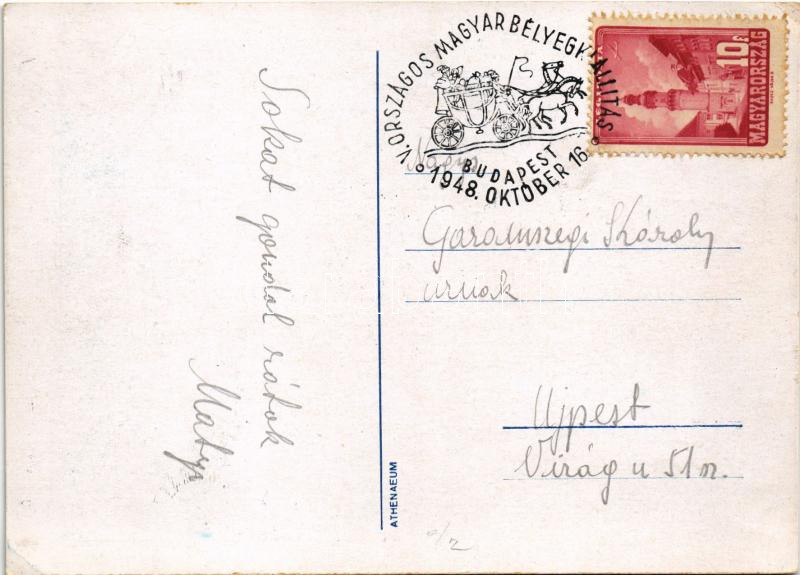 Sokat gondol rátok
Matyi
V. ORSZÁGOS MAGYAR BÉLYEGKIÁLLITÁS
BUDAPEST
1948. OKTÓBER 16
10 f
MAGYARORSZÁG
Nagys.
Garamszegi Károly
urnak
Ujpest
Virág u 51 sz.
ATHENAEUM